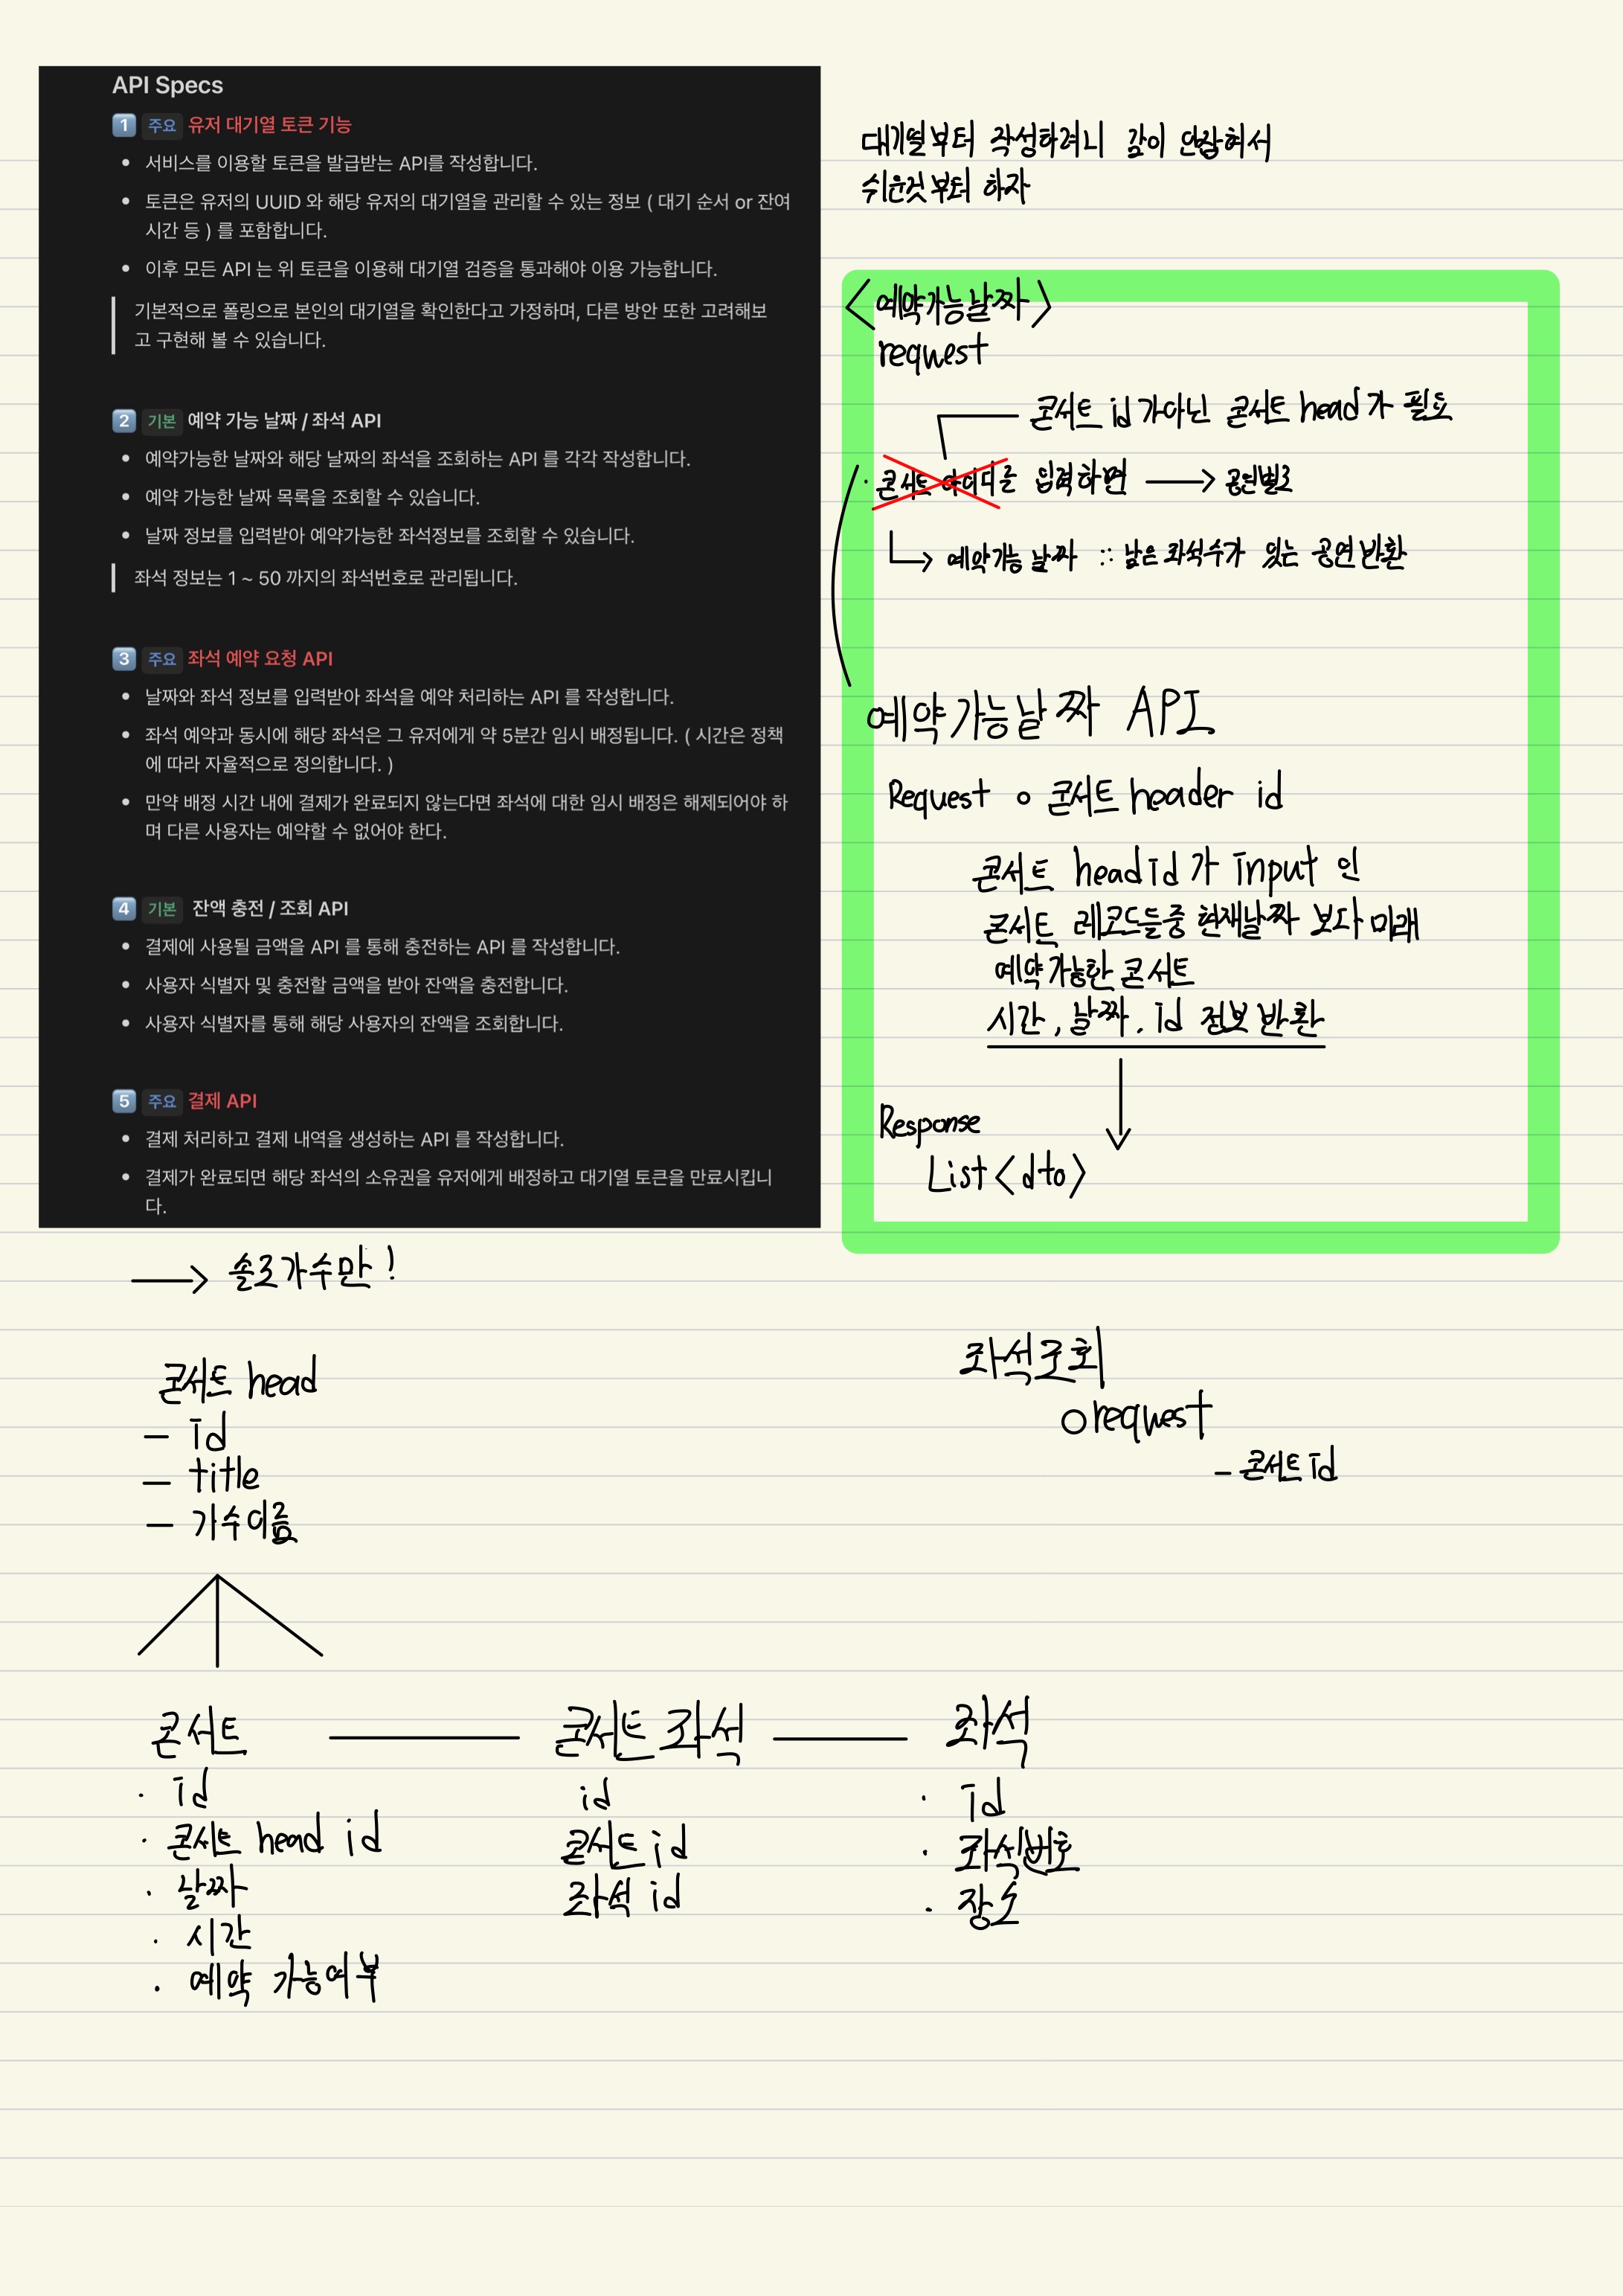 API Specs
1 주요 유저 대기열 토큰 기능
• 서비스를 이용할 토큰을 발급받는 API를 작성합니다.
• 토큰은 유저의 UUID 와 해당 유저의 대기열을 관리할 수 있는 정보 ( 대기 순서 or 잔여
시간 등 ) 를 포함합니다.
• 이후 모든 API 는 위 토큰을 이용해 대기열 검증을 통과해야 이용 가능합니다.
기본적으로 폴링으로 본인의 대기열을 확인한다고 가정하며, 다른 방안 또한 고려해보
고 구현해 볼 수 있습니다.
2 기본 예약 가능 날짜 / 좌석 API
• 예약가능한 날짜와 해당 날짜의 좌석을 조회하는 API 를 각각 작성합니다.
• 예약 가능한 날짜 목록을 조회할 수 있습니다.
• 날짜 정보를 입력받아 예약가능한 좌석정보를 조회할 수 있습니다.
좌석 정보는 1 ~ 50 까지의 좌석번호로 관리됩니다.
3 주요 좌석 예약 요청 API
• 날짜와 좌석 정보를 입력받아 좌석을 예약 처리하는 API 를 작성합니다.
• 좌석 예약과 동시에 해당 좌석은 그 유저에게 약 5분간 임시 배정됩니다. ( 시간은 정책
에 따라 자율적으로 정의합니다. )
• 만약 배정 시간 내에 결제가 완료되지 않는다면 좌석에 대한 임시 배정은 해제되어야 하
며 다른 사용자는 예약할 수 없어야 한다.
4 기본 잔액 충전 / 조회 API
• 결제에 사용될 금액을 API 를 통해 충전하는 API 를 작성합니다.
• 사용자 식별자 및 충전할 금액을 받아 잔액을 충전합니다.
• 사용자 식별자를 통해 해당 사용자의 잔액을 조회합니다.
5 주요 결제 API
• 결제 처리하고 결제 내역을 생성하는 API 를 작성합니다.
• 결제가 완료되면 해당 좌석의 소유권을 유저에게 배정하고 대기열 토큰을 만료시킵니
다.
대기열부터 작성하려니 감이 안잡혀서
쉬운것부터 하자
<예약가능날짜>
request
콘서트 id가아닌 콘서트 head가 필요
· 콘서트 아이디를 입력하면 → 공연별로
예약가능 날짜 ∵ 남은 좌석수가 있는 공연 반환
예약가능날짜 API
Request ○ 콘서트 header id
콘서트 head id 가 input 인
콘서트 레코드들중 현재날짜 보다 미래
예약가능한 콘서트
시간, 날짜, id 정보 반환
Response
List<dto>
→ 솔로가수만!
콘서트 head
- id
- title
- 가수이름
좌석조회
○ request
- 콘서트 id
콘서트
· id
· 콘서트 head id
· 날짜
· 시간
· 예약 가능여부
콘서트 좌석
id
콘서트 id
좌석 id
좌석
· id
· 좌석번호
· 장소